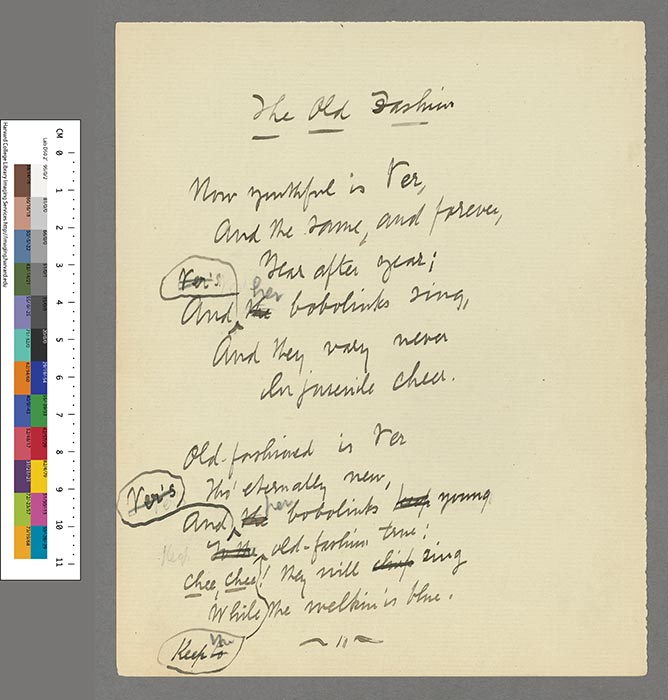 The Old Fashion
Now youthful is Ver,
And the same, and forever,
Year after year;
Ver's
her
And the bobolinks sing,
And they vary never
In juvenile cheer.
Old-fashioned is Ver
Tho' eternally new,
Ver's
her
And the bobolinks keep young
To the old-fashion true:
Keep
Chee, Chee! they will chirp sing
While the welkin is blue.
Keep to
the
11
CM 0 1 2 3 4 5 6 7 8 9 10 11
Harvard College Library Imaging Services